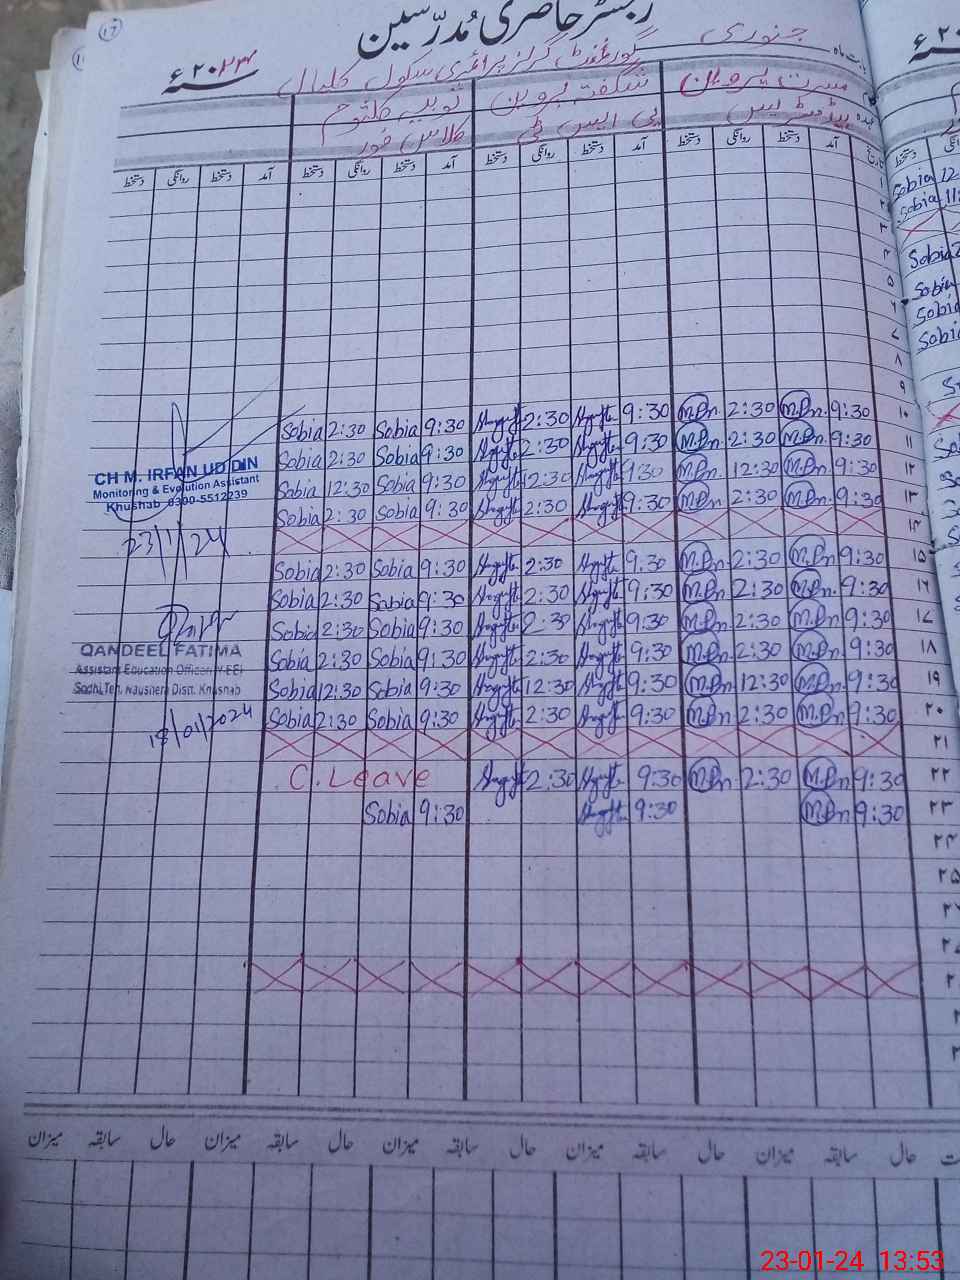 رجسٹر حاضری مُدرّسین
بابت ماہ جنوری گورنمنٹ گرلز پرائمری سکول کلیال ۲۰۲۴ء
مسرت پروین شگفتہ پروین ثوبیہ کلثوم
ہیڈ مسٹریس پی ایس ٹی کلاس فور
تاریخ آمد دستخط روانگی دستخط آمد دستخط روانگی دستخط آمد دستخط روانگی دستخط آمد دستخط روانگی دستخط
۱
۲
۳
۴
۵
۶
۷
۸
۹
Sobia 2:30 Sobia 9:30 2:30 9:30 M.Pn 2:30 M.Pn. 9:30 ۱۰
Sobia 2:30 Sobia 9:30 2:30 9:30 M.Pn 2:30 M.Pn 9:30 ۱۱
Sobia 12:30 Sobia 9:30 12:30 9:30 M.Pn 12:30 M.Pn 9:30 ۱۲
Sobia 2:30 Sobia 9:30 2:30 9:30 M.Pn 2:30 M.Pn 9:30 ۱۳
۱۴
Sobia 2:30 Sobia 9:30 2:30 9:30 M.Pn 2:30 M.Pn 9:30 ۱۵
Sobia 2:30 Sobia 9:30 2:30 9:30 M.Pn 2:30 M.Pn. 9:30 ۱۶
Sobia 2:30 Sobia 9:30 2:30 9:30 M.Pn 2:30 M.Pn. 9:30 ۱۷
Sobia 2:30 Sobia 9:30 2:30 9:30 M.Pn 2:30 M.Pn. 9:30 ۱۸
Sobia 12:30 Sobia 9:30 12:30 9:30 M.Pn 12:30 M.Pn 9:30 ۱۹
Sobia 2:30 Sobia 9:30 2:30 9:30 M.Pn 2:30 M.Pn 9:30 ۲۰
۲۱
C. Leave 2:30 9:30 M.Pn 2:30 M.Pn 9:30 ۲۲
Sobia 9:30 9:30 M.Pn 9:30 ۲۳
۲۴
۲۵
CH M. IRFAN UD DIN
Monitoring & Evolution Assistant
Khushab 0300-5512239
23/1/24
QANDEEL FATIMA
Assistant Education Officer (W-EE)
Sodhi, Teh. Naushera Distt. Khushab
18/01/2024
حال سابقہ میزان حال سابقہ میزان حال سابقہ میزان حال سابقہ میزان حال سابقہ میزان
۲۰
دستخط
Sobia 12
Sobia 11:
Sobia 2
Sobia
Sobia
Sobia
23-01-24 13:53